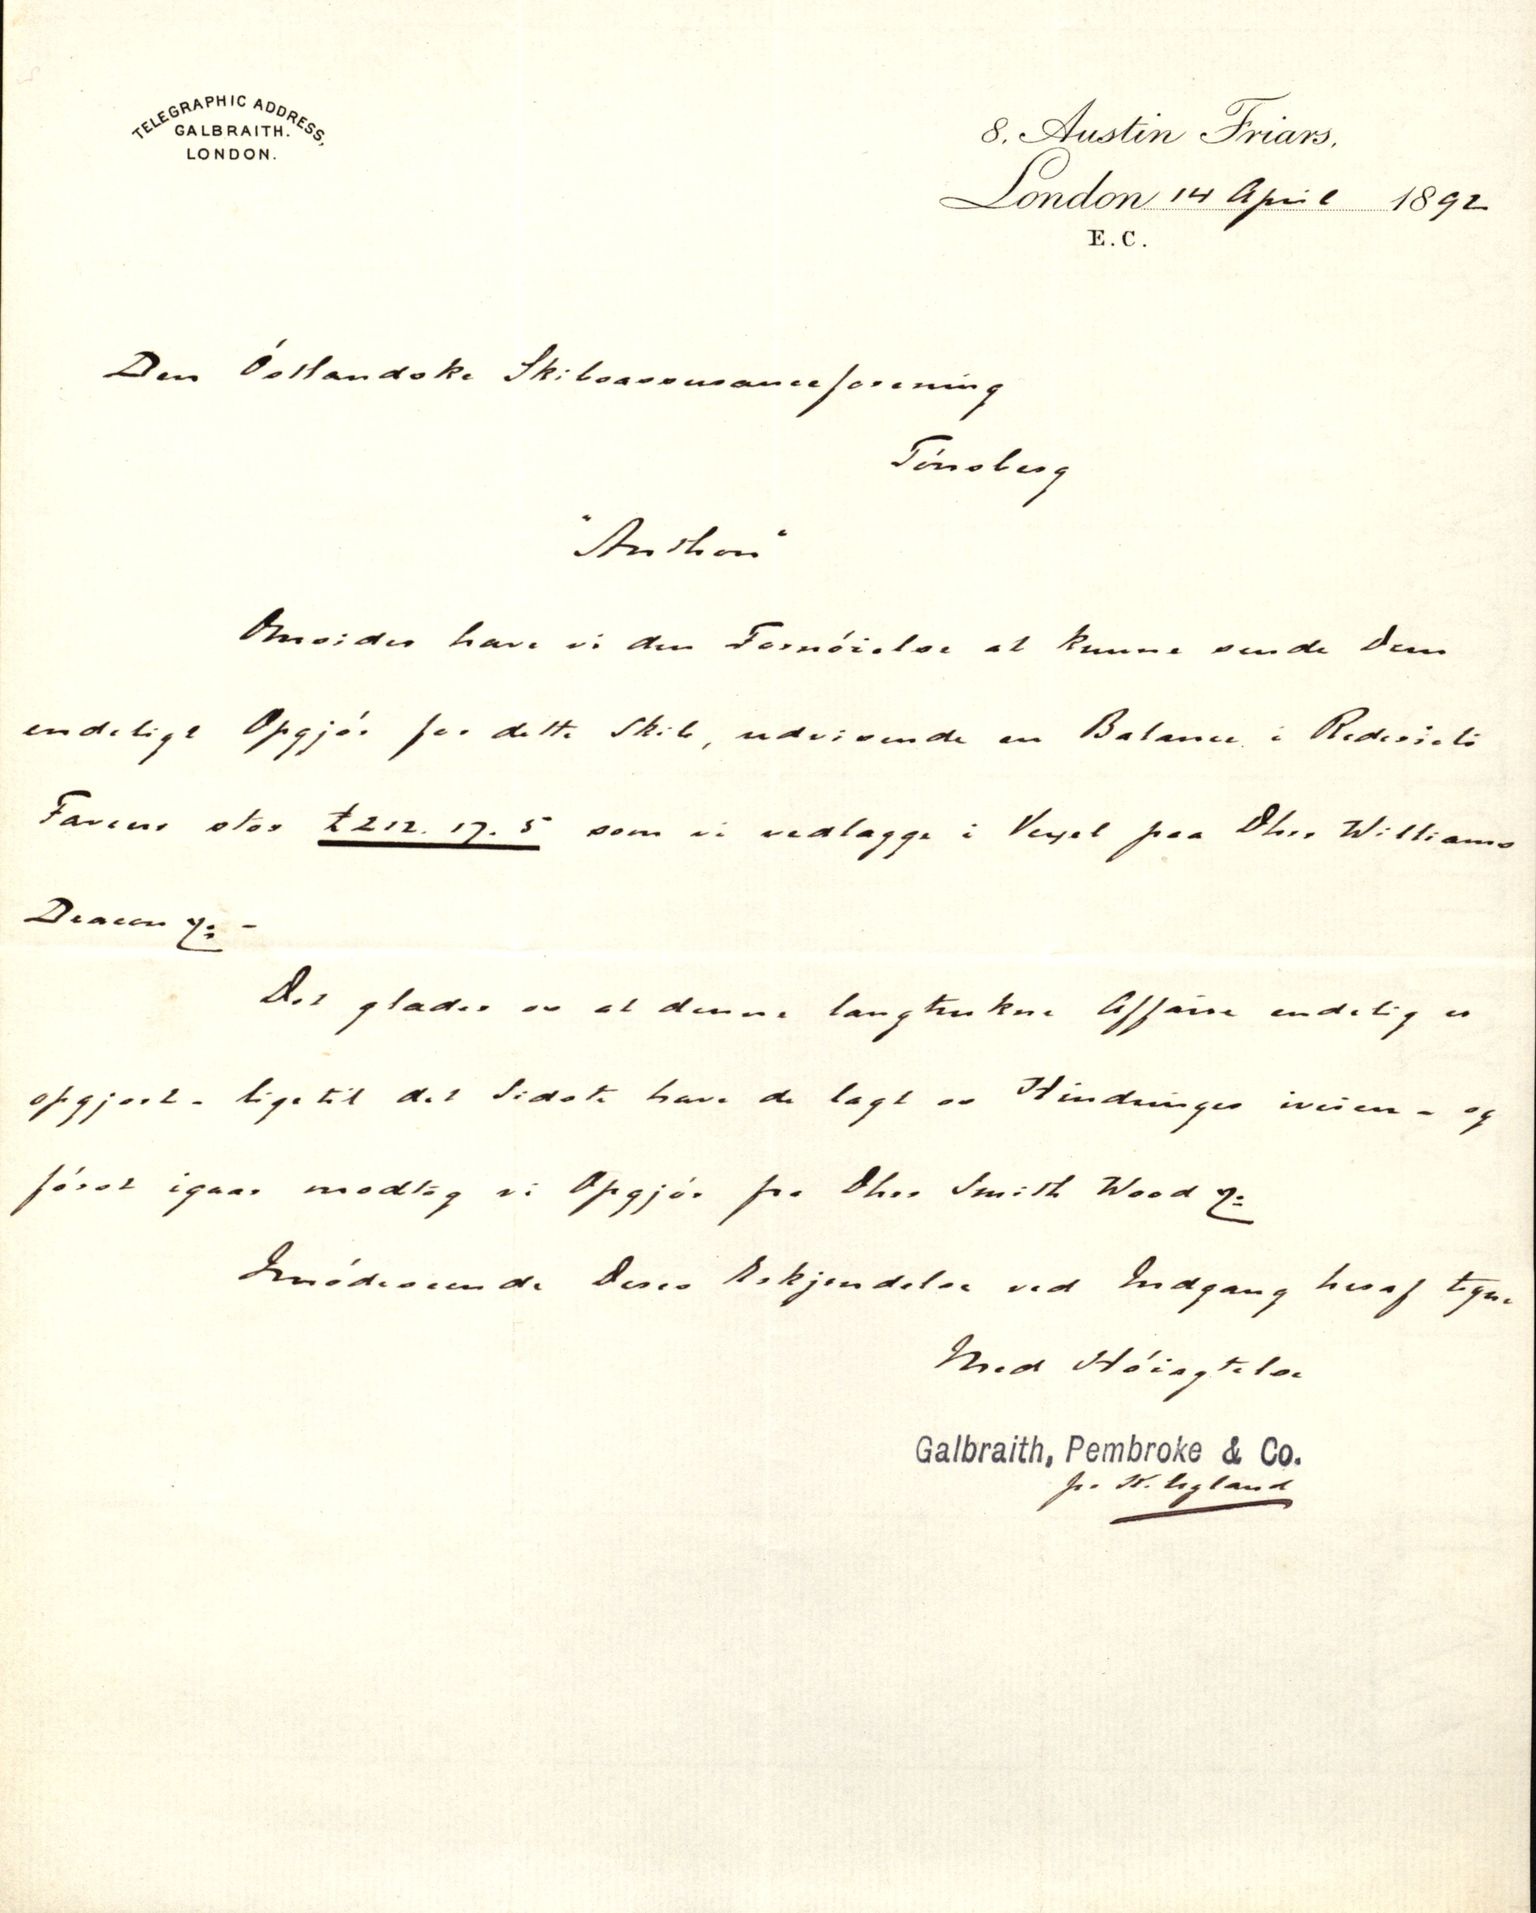 TELEGRAPHIC ADDRESS,
GALBRAITH.
LONDON.
8. Austin Friars,
London 14 April 1892
E.C.
Den Östlandske Skibsassuranceforening
Tönsberg
"Anthon"
Omsider have vi den Fornöielse at kunne sende Dem
endeligt Opgjör for dette Skib, udvisende en Balance i Rederiets
Faveur stor £212. 17. 5 som vi vedlægge i Vexel paa Dhrr Williams
Deacon &Co: -
Det glæder os at denne langtrukne Affaire endelig er
opgjort - ligetil det Sidste have de lagt os Hindringer iveien - og
först igaar modtog vi Opgjör fra Dhrr Smith Wood &Co:
Imödeseende Deres Erkjendelse ved Indgang heraf tegne
Med Höiagtelse
Galbraith, Pembroke & Co.
pr K. Ugland